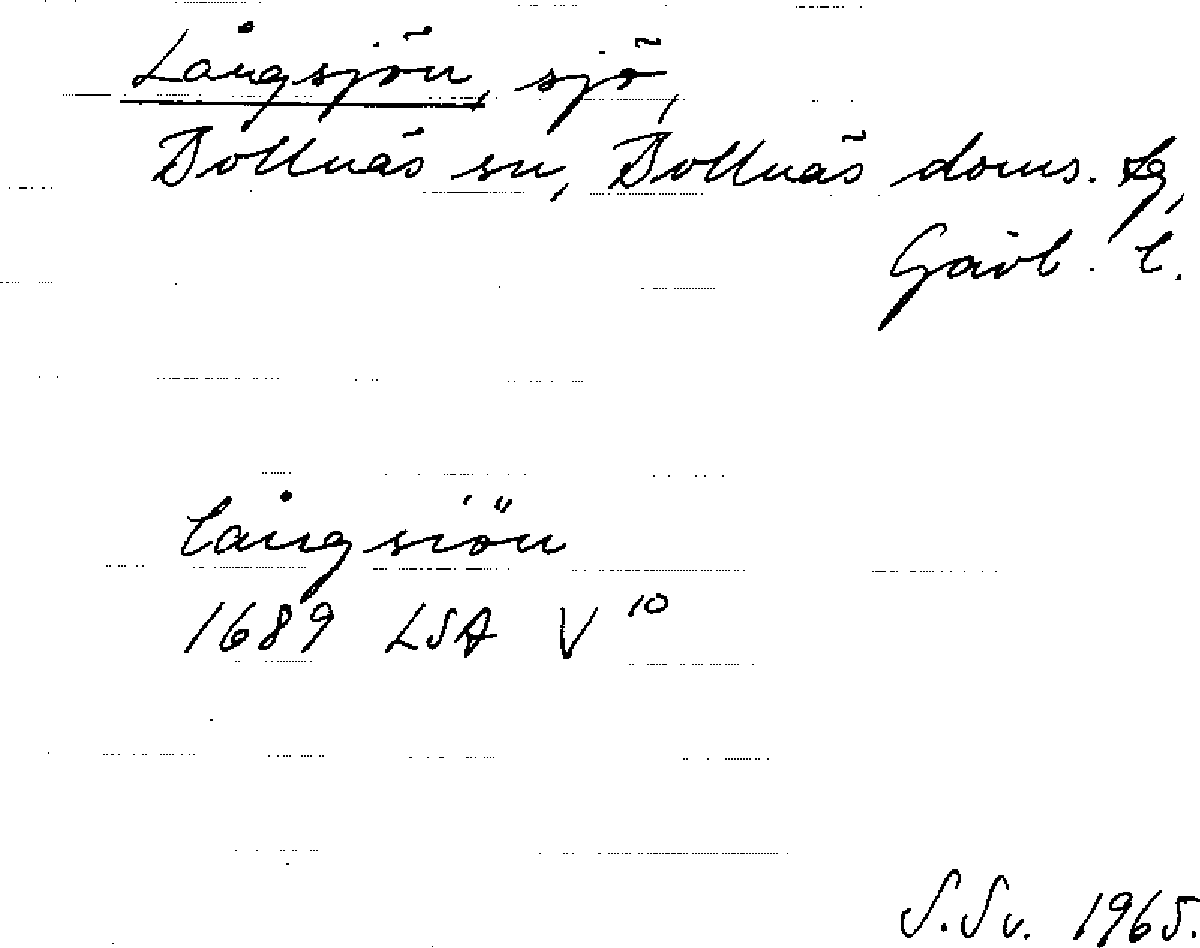 Långsjön, sjö,
Bollnäs sn, Bollnäs doms. tg,
Gävl. l.
Långsiön
1689 LSA V 10
S. Sv. 1965.